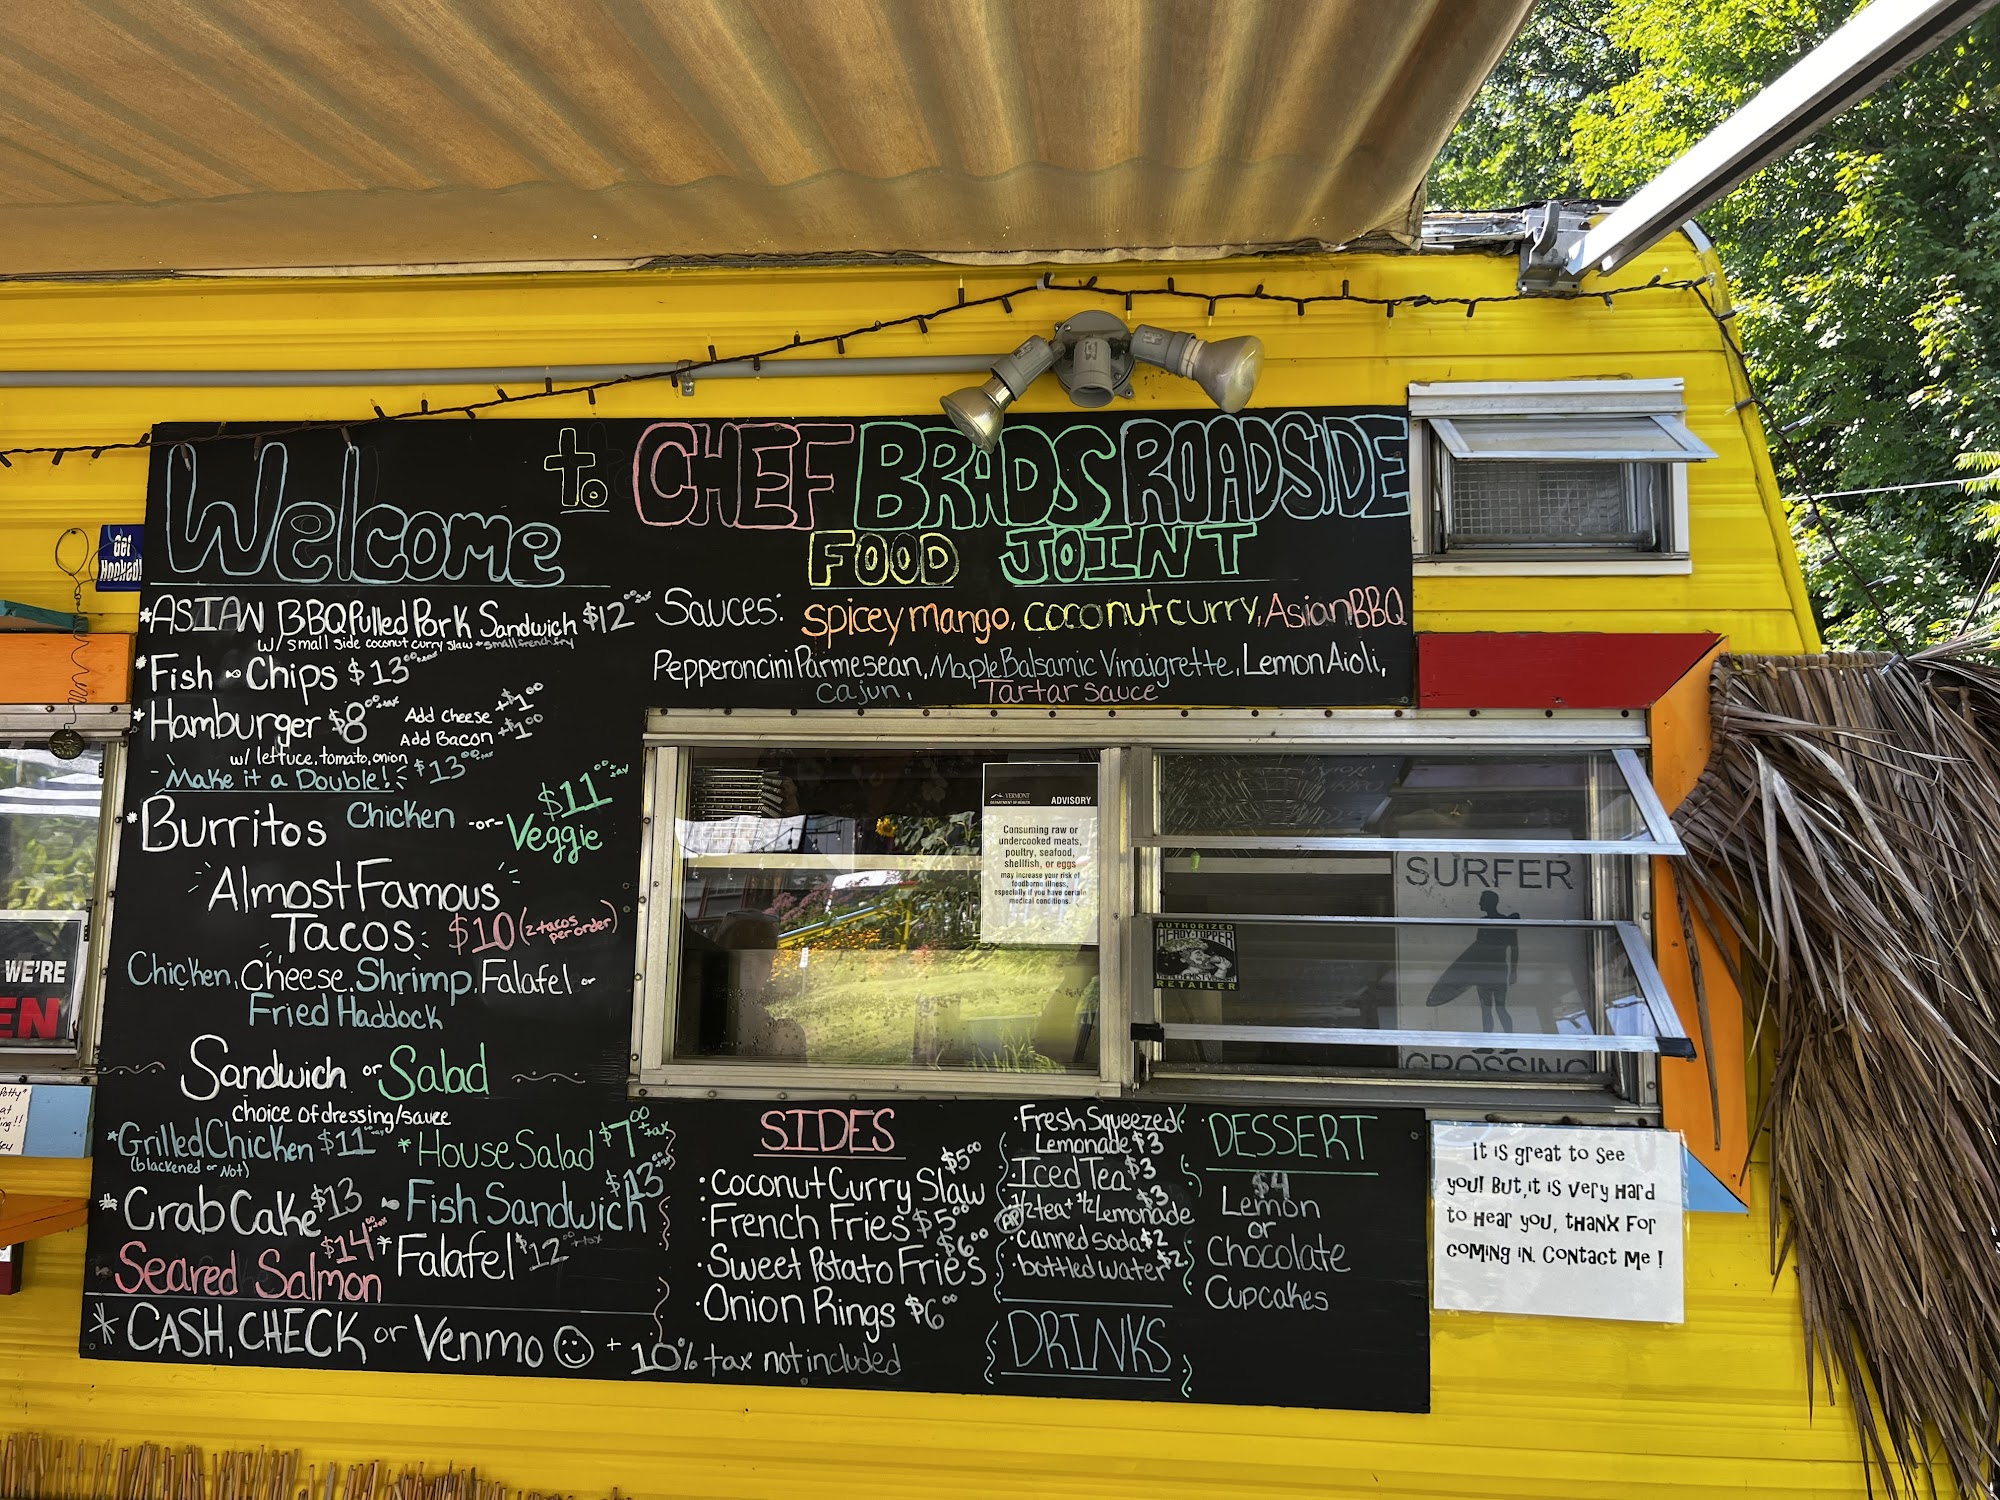 Welcome to CHEF BRADS ROADSIDE
FOOD JOINT
Get
Hooked!
*ASIAN BBQ Pulled Pork Sandwich $12.00+tax
w/ small side coconut curry slaw + small french fry
*Fish Chips $13.00+tax
*Hamburger $8.00+tax
Add Cheese +$1.00
Add Bacon +$1.00
w/ lettuce, tomato, onion
- Make it a Double! $13.00+tax
*Burritos Chicken -or- Veggie $11.00+tax
Almost Famous
Tacos $10 (2 tacos
per order)
Chicken, Cheese, Shrimp, Falafel or
Fried Haddock
Sandwich or Salad
choice of dressing/sauce
*Grilled Chicken $11.00+tax
(blackened or Not)
*House Salad $7.00+tax
*Crab Cake $13
Fish Sandwich $13.00+tax
Seared Salmon $14.00+tax
*Falafel $12.00+tax
* CASH, CHECK or Venmo + 10% tax not included
Sauces: spicey mango, coconut curry, Asian BBQ
Pepperoncini Parmesean, Maple Balsamic Vinaigrette, Lemon Aioli,
Cajun, Tartar Sauce
VERMONT
DEPARTMENT OF HEALTH
ADVISORY
Consuming raw or
undercooked meats,
poultry, seafood,
shellfish, or eggs
may increase your risk of
foodborne illness,
especially if you have certain
medical conditions.
AUTHORIZED
HEADY-TOPPER
RETAILER
SURFER
CROSSING
SIDES
·Coconut Curry Slaw $5.00
·French Fries $5.00
·Sweet Potato Fries $6.00
·Onion Rings $6.00
·Fresh Squeezed
Lemonade $3
·Iced Tea $3
(AP) 1/2 tea + 1/2 Lemonade $3
·canned soda $2
·bottled water $2
DRINKS
DESSERT
$4
Lemon
or
Chocolate
Cupcakes
It is great to see
you! But, it is very hard
to hear you, thanx for
coming in. Contact Me!
WE'RE
EN
Potty*
at